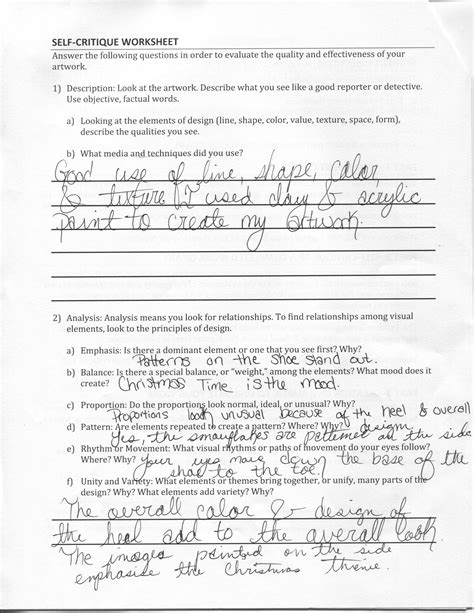 SELF-CRITIQUE WORKSHEET
Answer the following questions in order to evaluate the quality and effectiveness of your
artwork.
1) Description: Look at the artwork. Describe what you see like a good reporter or detective.
Use objective, factual words.
a) Looking at the elements of design (line, shape, color, value, texture, space, form),
describe the qualities you see.
b) What media and techniques did you use?
Good use of line, shape, color
& texture. I used clay & acrylic
paint to create my artwork.
2) Analysis: Analysis means you look for relationships. To find relationships among visual
elements, look to the principles of design.
a) Emphasis: Is there a dominant element or one that you see first? Why?
Patterns on the shoe stand out.
b) Balance: Is there a special balance, or "weight", among the elements? What mood does it
create? Christmas Time is the mood.
c) Proportion: Do the proportions look normal, ideal, or unusual? Why?
Proportions look unusual because of the heel & overall
d) Pattern: Are elements repeated to create a pattern? Where? Why? design.
Yes, the snowflakes are patterned on the side
e) Rhythm or Movement: What visual rhythms or paths of movement do your eyes follow?
Where? Why? Your eyes move down the base of the
shoe to the toe.
f) Unity and Variety: What elements or themes bring together, or unify, many parts of the
design? Why? What elements add variety? Why?
The overall color & design of
the heal add to the overall look.
The images painted on the side
emphasise the Christmas theme.